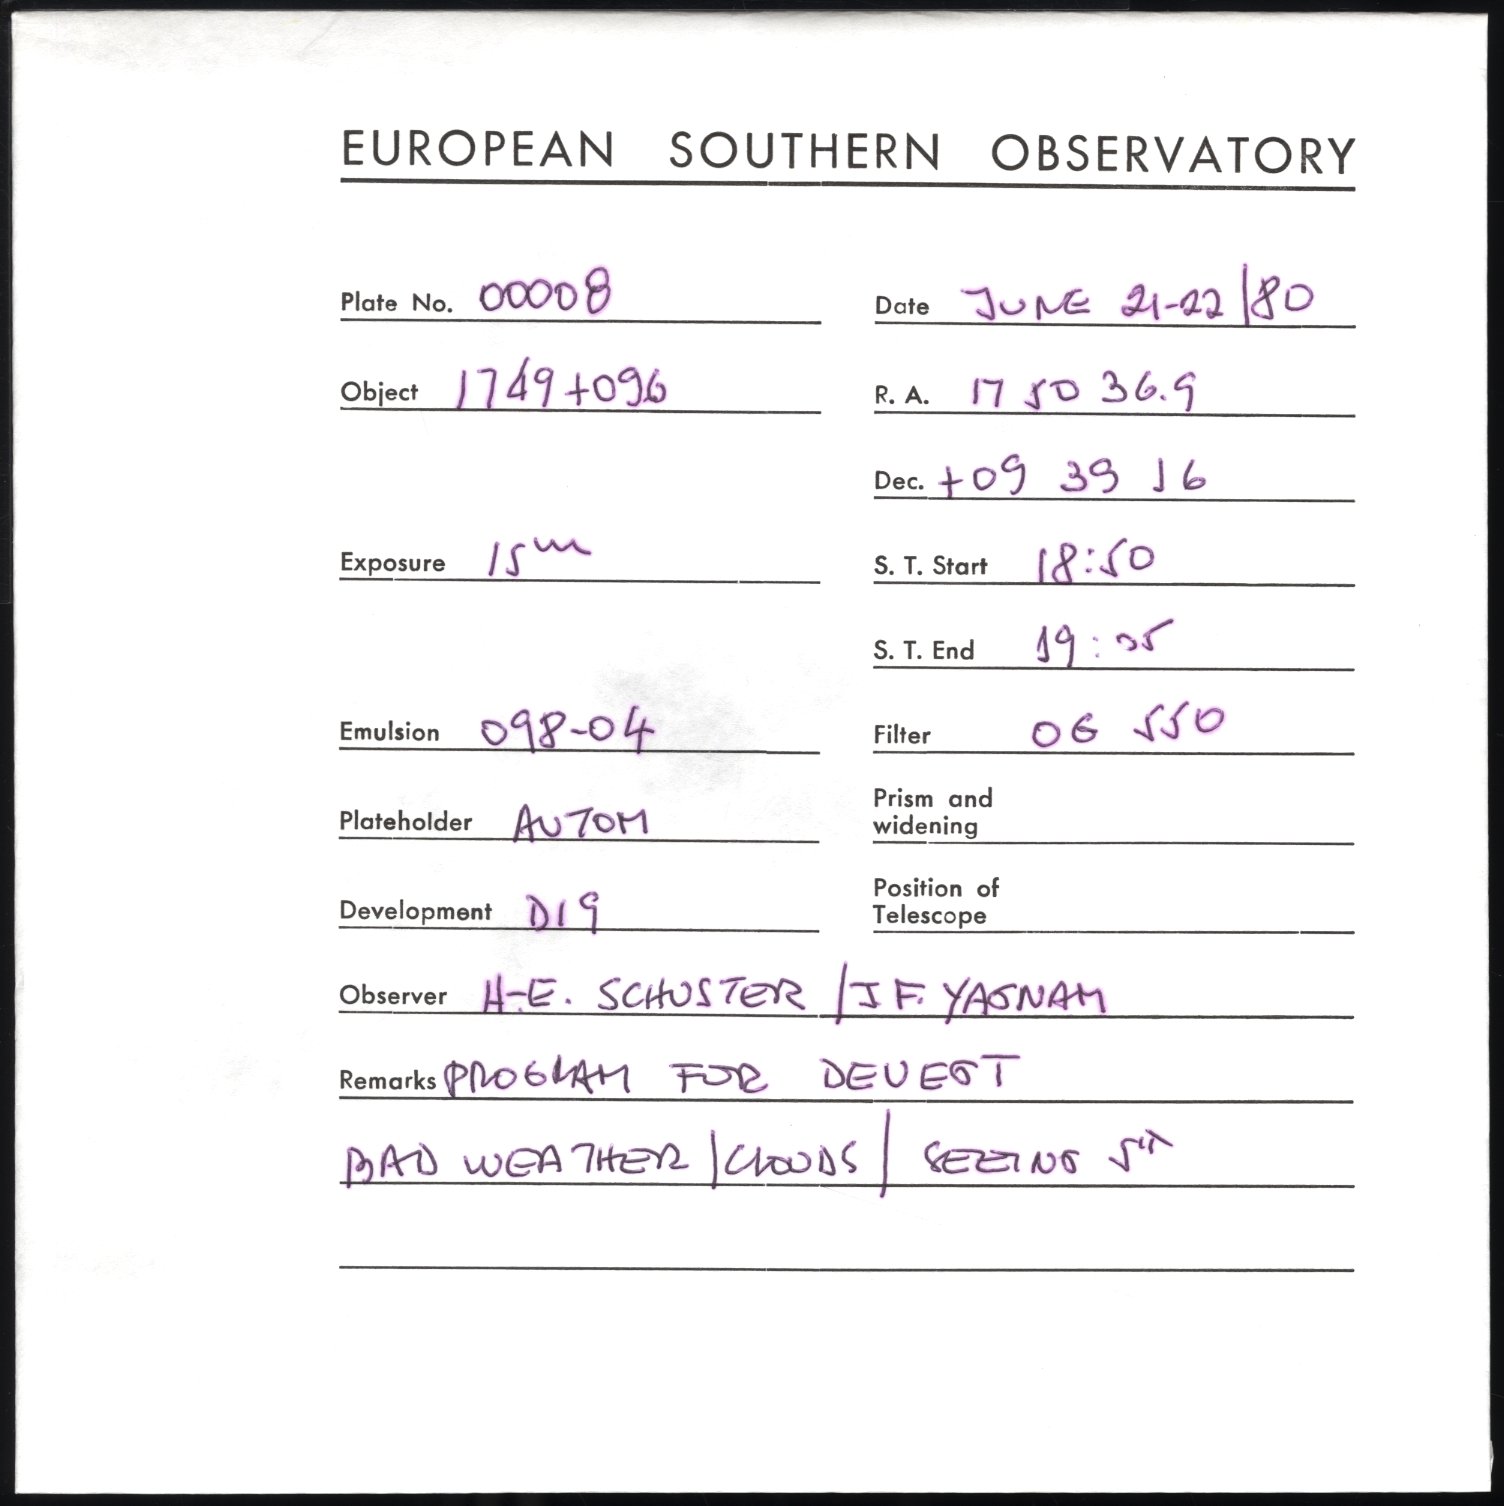 EUROPEAN SOUTHERN OBSERVATORY
Plate No. 00008
Date JUNE 21-22/80
Object 1749+096
R. A. 17 50 36.9
Dec. +09 39 16
Exposure 15m
S. T. Start 18:50
S. T. End 19:05
Emulsion 098-04
Filter OG 550
Plateholder AUTOM
Prism and
widening
Development D19
Position of
Telescope
Observer H-E. SCHUSTER / J F. YAGNAM
Remarks PROGRAM FOR DEVEGT
BAD WEATHER / CLOUDS / SEEING 5"